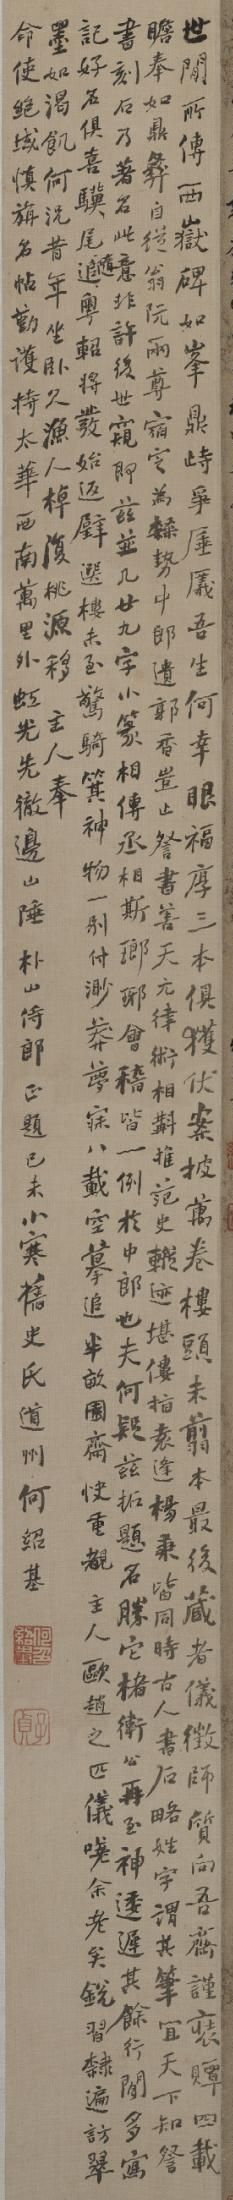 世間所傳西嶽碑如峯鼎峙爭厜㕒吾生何幸眼福厚三本俱獲伏案披萬卷樓頭未翦本最後藏者儀徵師質向吾齋謹裹䞋四載
瞻奉如鼎彝自從翁阮兩尊宿定為隸勢中郎遺郭香豈止詧書善天元律術相斠推范史轍迹堪僂指袁逢楊秉皆同時古人書石略姓字謂其筆宜天下知詧
書刻石乃著名此意非許後世窺即茲並几廿九字小篆相傳丞相斯瑯琊會稽皆一例於中郎也夫何疑茲拓題名勝它楮衛公再至神逶遲其餘行間多寫
記好名俱喜驥尾隨追粵軺將發始返璧選樓未至驚騎箕神物一別付渺莽夢寐八載空摹追半畝園齋快重覯 主人歐趙之匹儀嘵余老矣銳習隸遍訪翠
墨如渴飢何況昔年坐臥久漁人棹復桃源移 主人奉
命使絕域慎旃名帖勤護持太華西南萬里外虹光先徹邊山陲 朴山侍郎正題己未小寒舊史氏道州何紹基
子貞